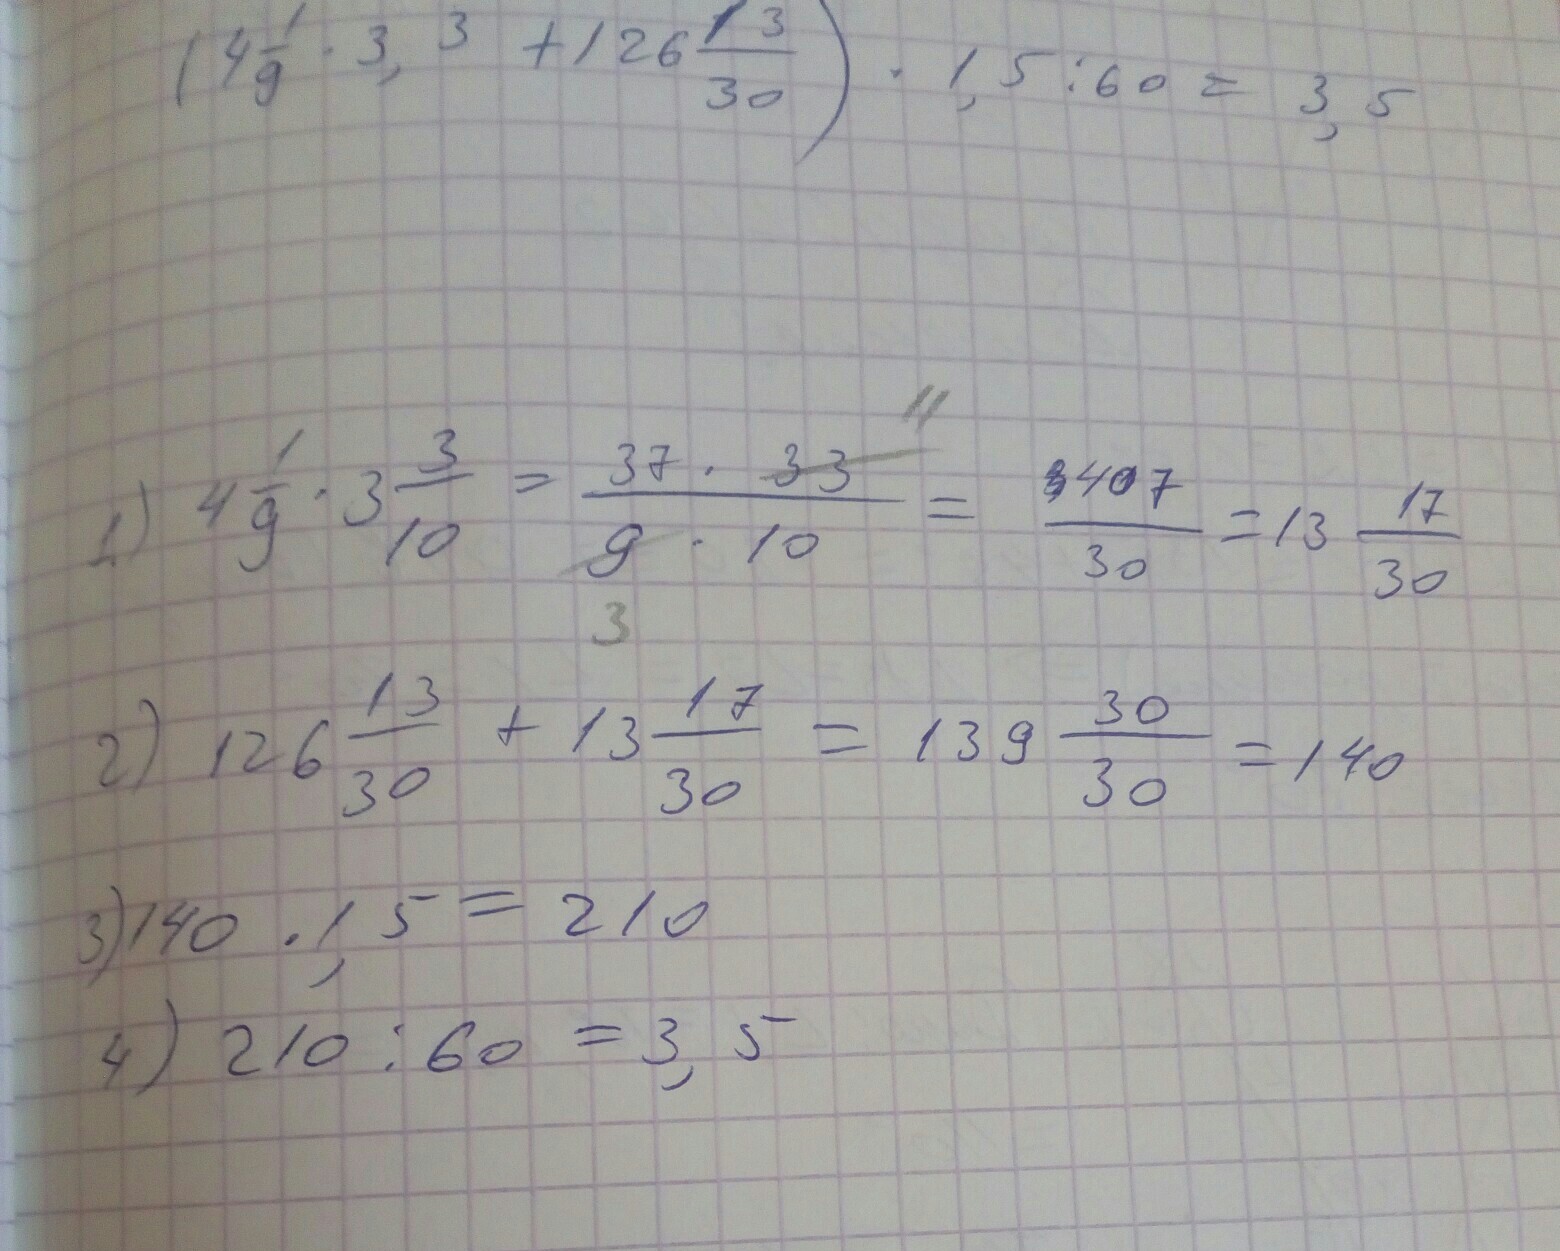 (4 1/9 · 3,3 + 126 13/30) · 1,5 : 60 = 3,5
11
1) 4 1/9 · 3 3/10 = 37 · 33 / 9 · 10 = 407/30 = 13 17/30
3
2) 126 13/30 + 13 17/30 = 139 30/30 = 140
3) 140 · 1,5 = 210
4) 210 : 60 = 3,5